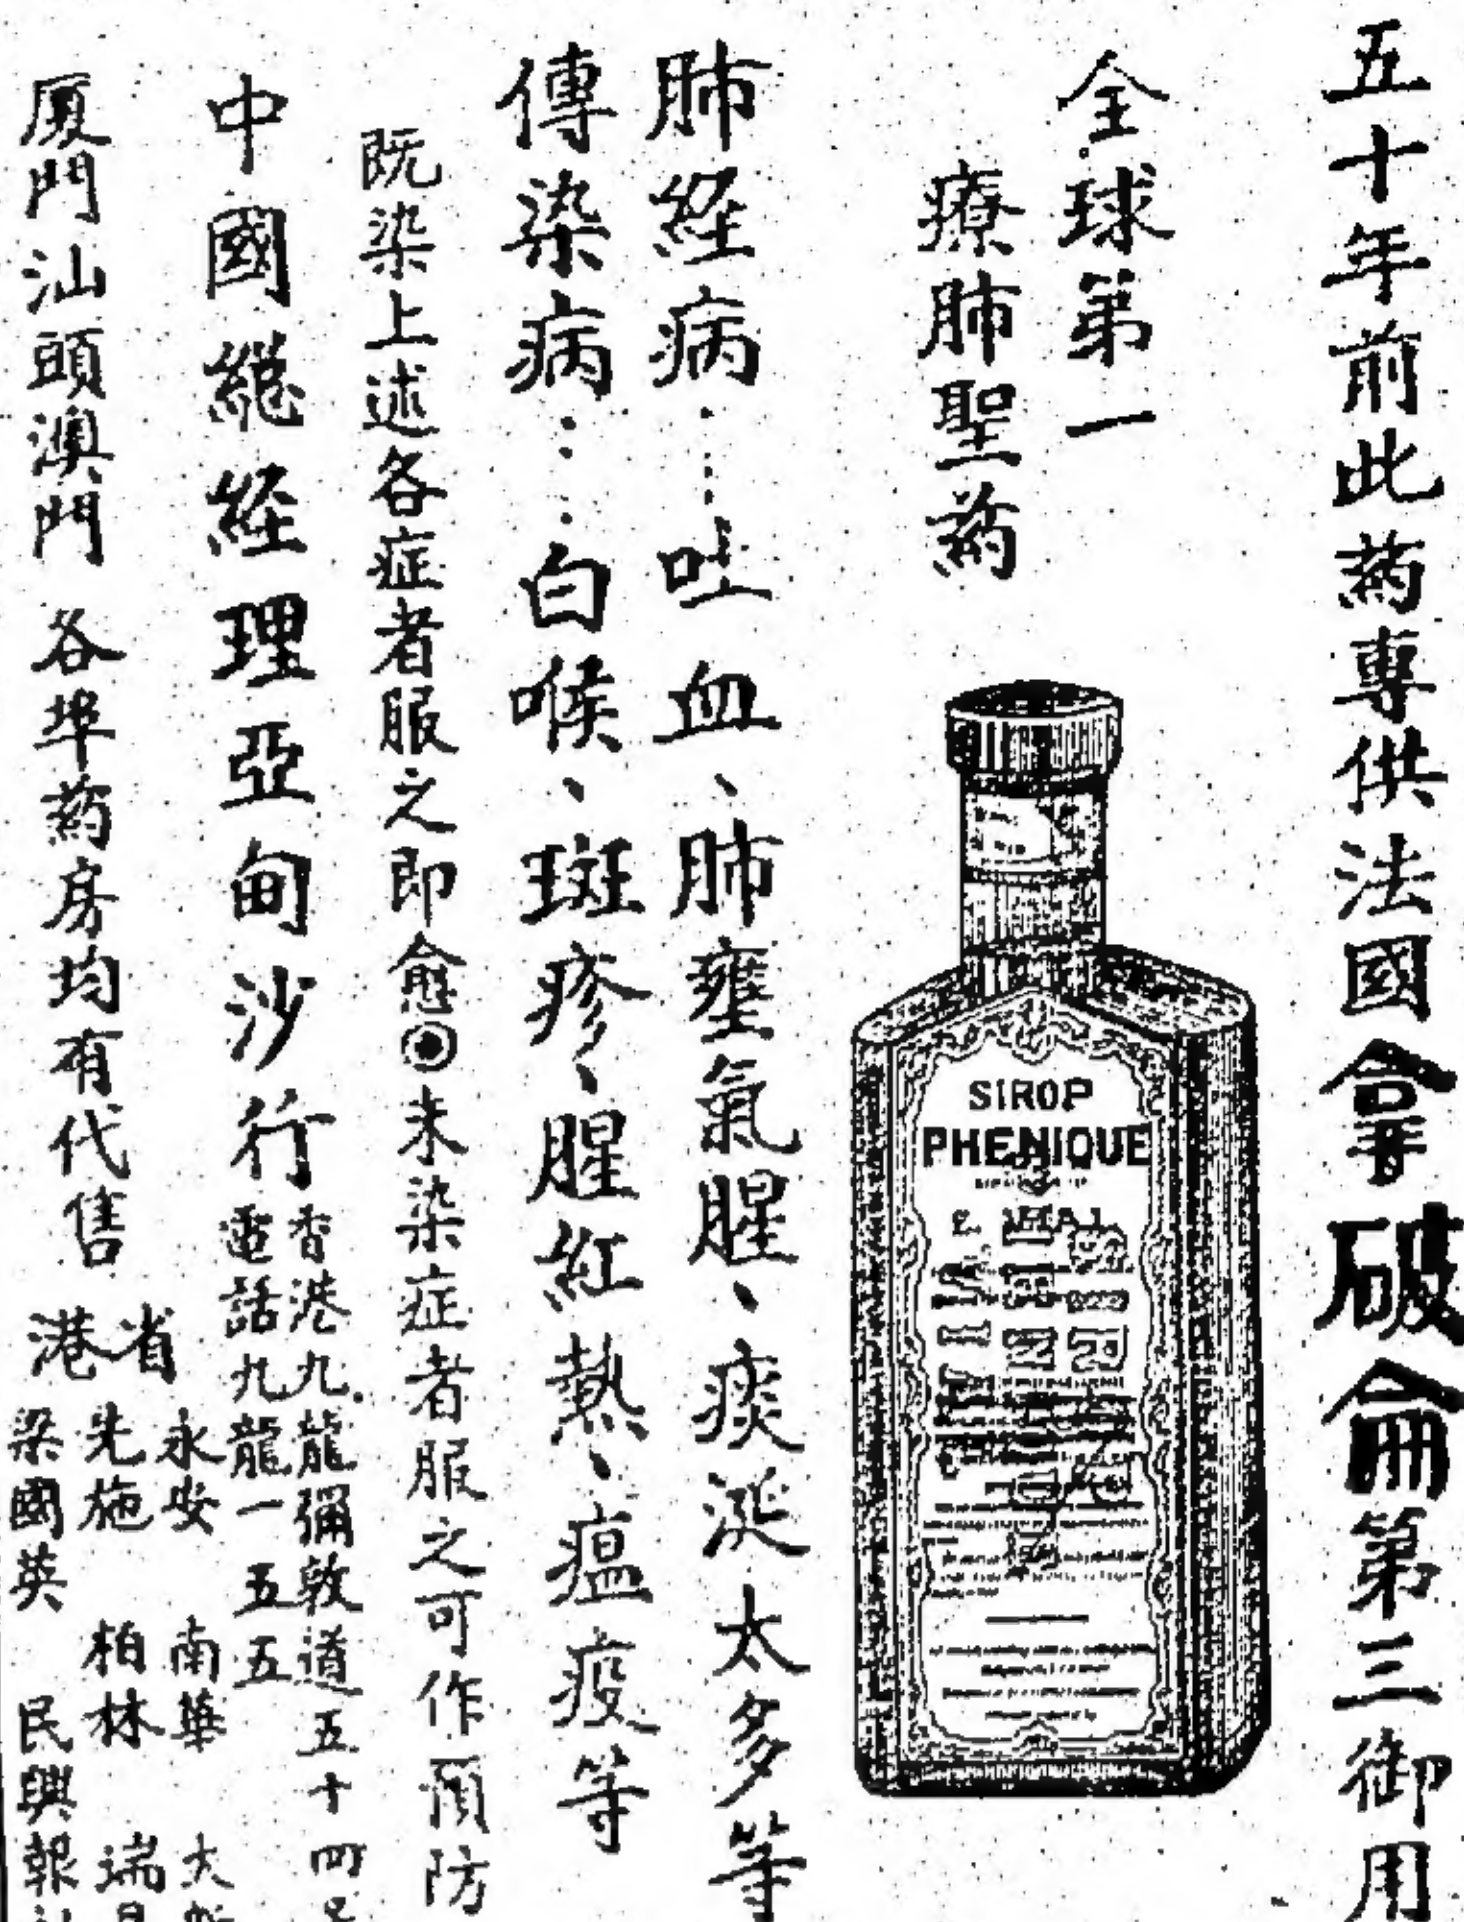 五十年前此葯專供法國拿破侖第三御用
全球第一
療肺聖葯
SIROP
PHENIQUE
肺経病……吐血、肺壅氣腥、痰涎太多等
傳染病……白喉、斑疹、腥紅熱、瘟疫等
既染上述各症者服之即愈◉未染症者服之可作預防
中國縂経理亞甸沙行
香港九龍彌敦道五十四号
電話九龍一五五五
厦門汕頭澳門 各埠葯房均有代售
省港
永安 南華 大
先施 柏林 瑞
梁國英 民興報